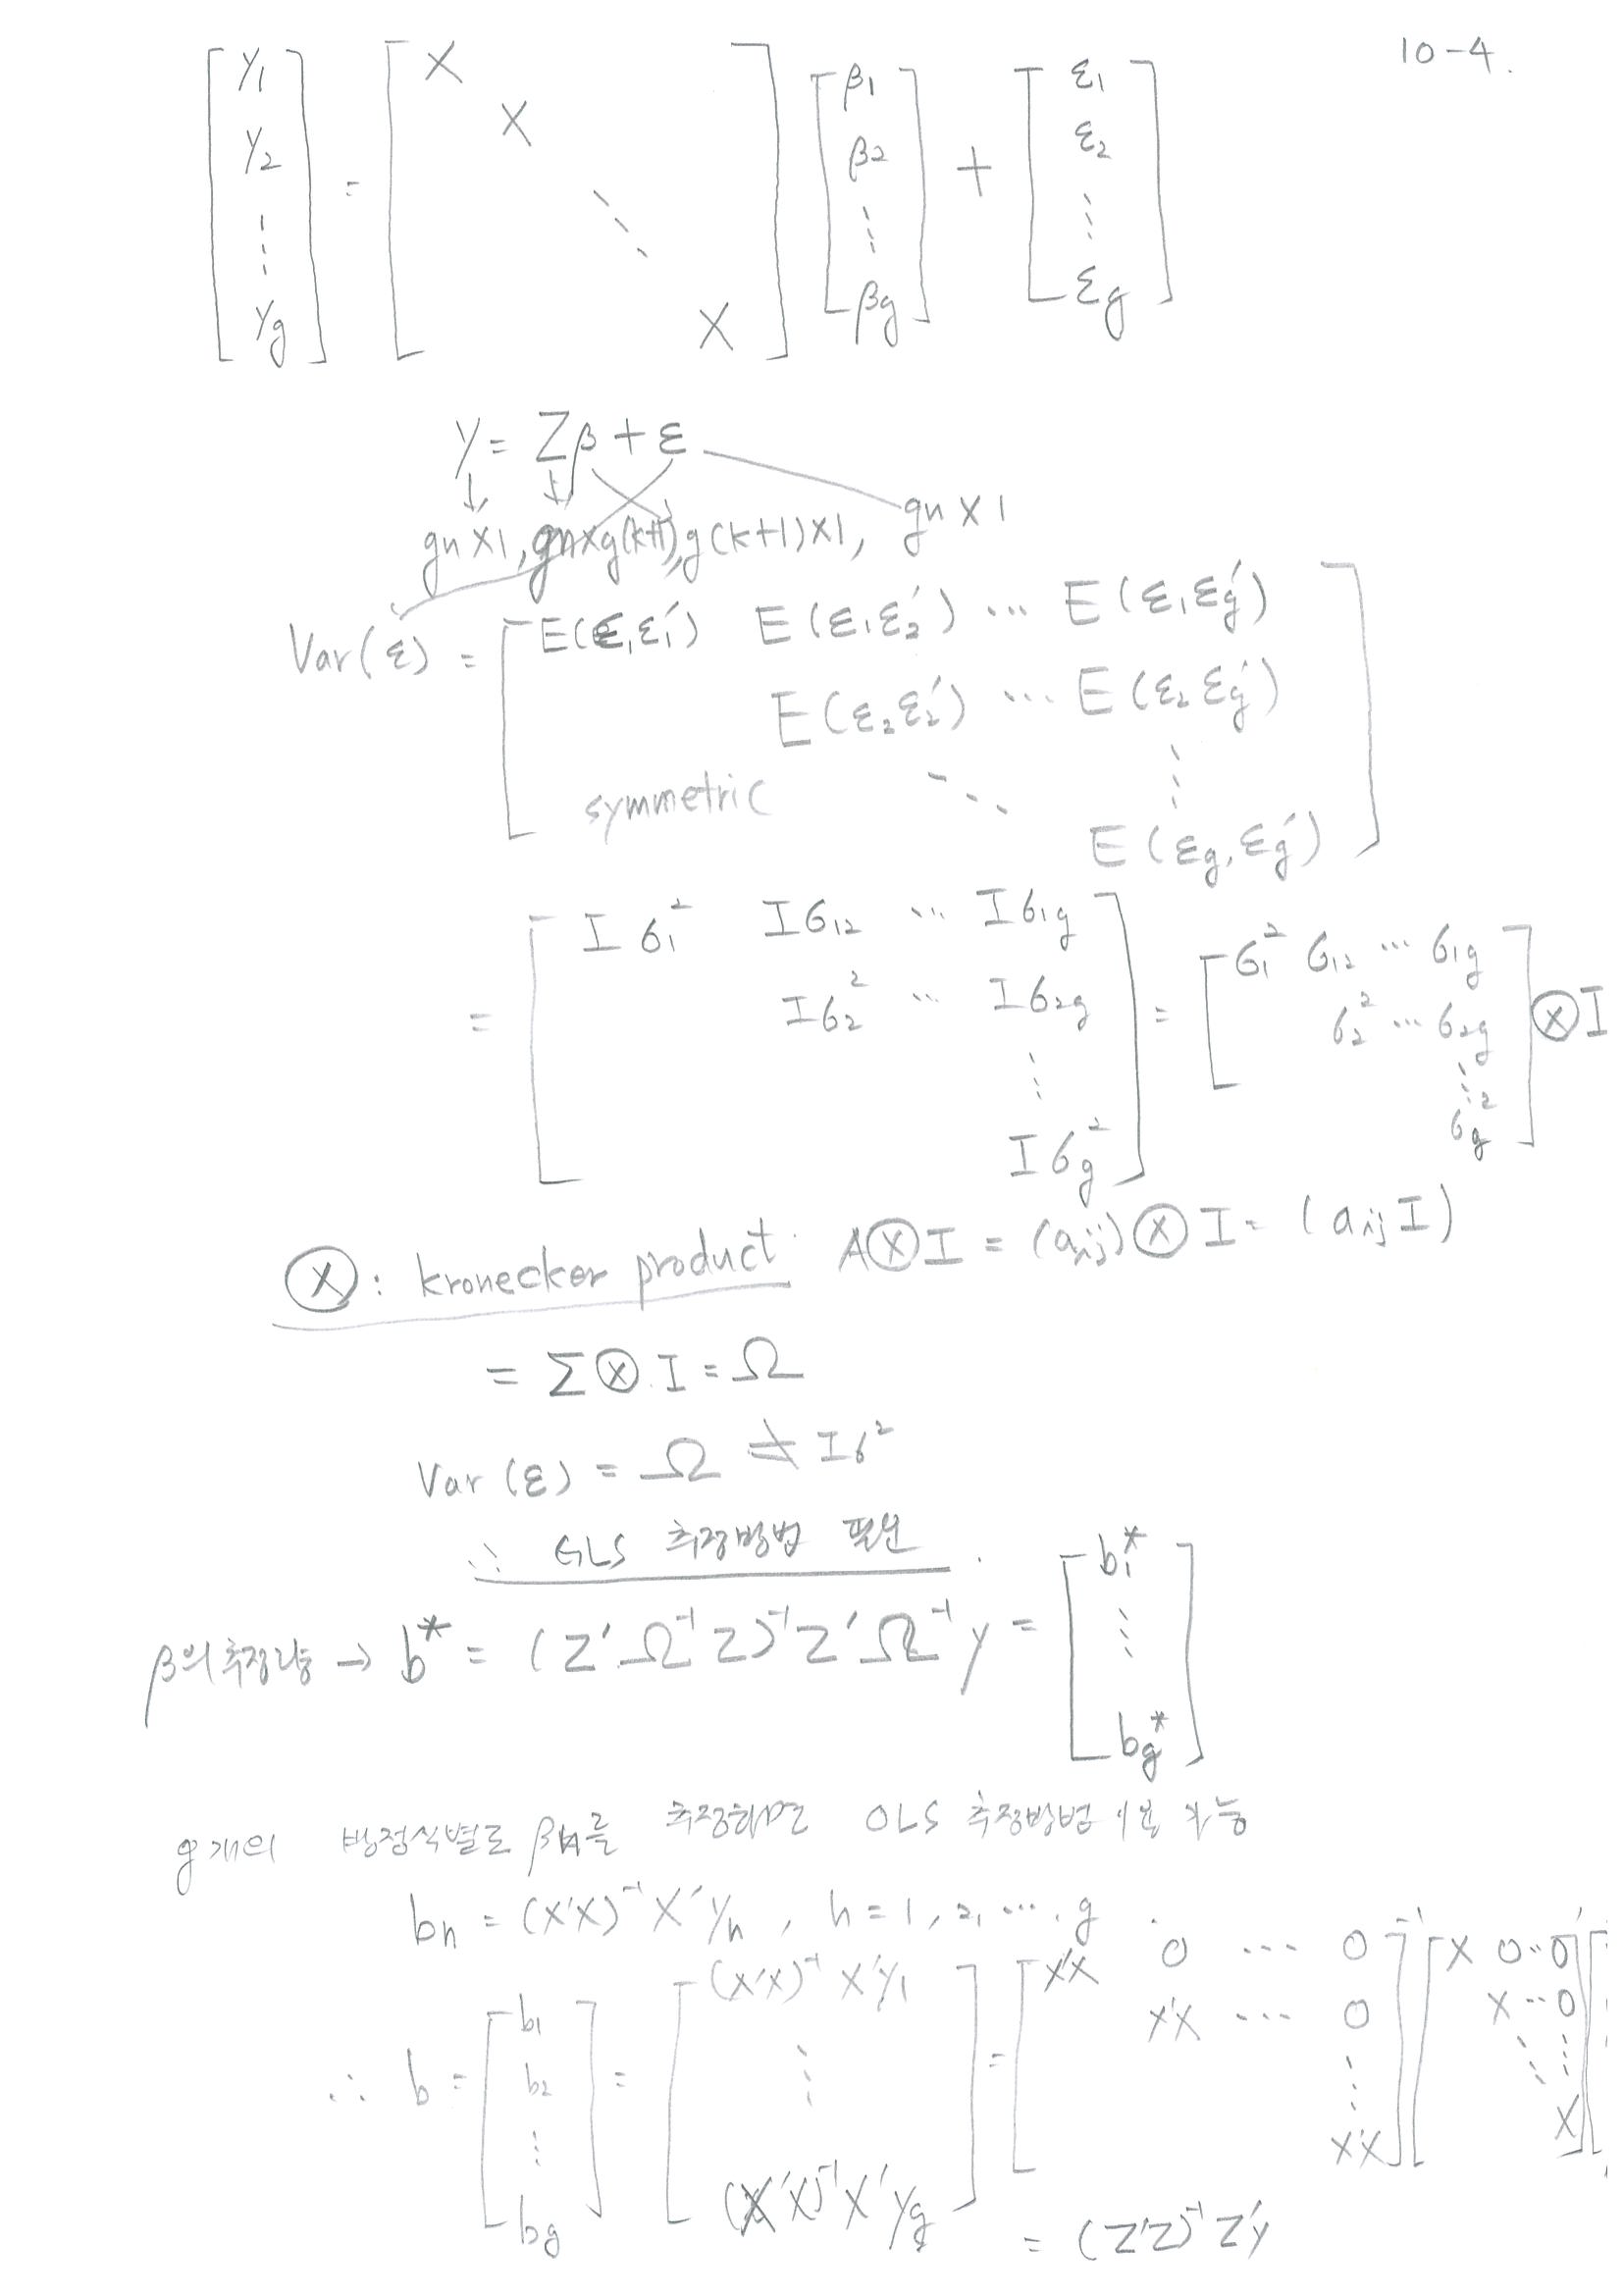 10-4.
[y1 y2 ⋮ yg] = [X X ⋱ X] [β1 β2 ⋮ βg] + [ε1 ε2 ⋮ εg]
y = Zβ + ε
gn×1, gn×g(k+1), g(k+1)×1, gn×1
Var(ε) = [E(ε1ε1′) E(ε1ε2′) ⋯ E(ε1εg′)
E(ε2ε2′) ⋯ E(ε2εg′)
symmetric ⋱ ⋮
E(εg,εg′)]
= [Iσ1² Iσ12 ⋯ Iσ1g
Iσ2² ⋯ Iσ2g
⋮
Iσg²] = [σ1² σ12 ⋯ σ1g
σ2² ⋯ σ2g
⋮
σg²] ⊗ I
⊗ : kronecker product. A⊗I = (aij)⊗I = (aijI)
= Σ⊗I = Ω
Var(ε) = Ω ≠ Iσ²
∴ GLS 추정방법 필요.
β의 추정량 → b* = (Z′Ω⁻¹Z)⁻¹Z′Ω⁻¹y = [b1* ⋮ bg*]
g개의 방정식별로 βh를 추정하면 OLS 추정방법 이용 가능
bh = (X′X)⁻¹X′yh, h=1, 2, ⋯. g.
∴ b = [b1 b2 ⋮ bg] = [(X′X)⁻¹X′y1 ⋮ (X′X)⁻¹X′yg] = [X′X 0 ⋯ 0
X′X ⋯ 0
⋮
X′X]⁻¹ [X 0⋯0
X⋯0
⋱ ⋮
X]′ [
= (Z′Z)⁻¹Z′y